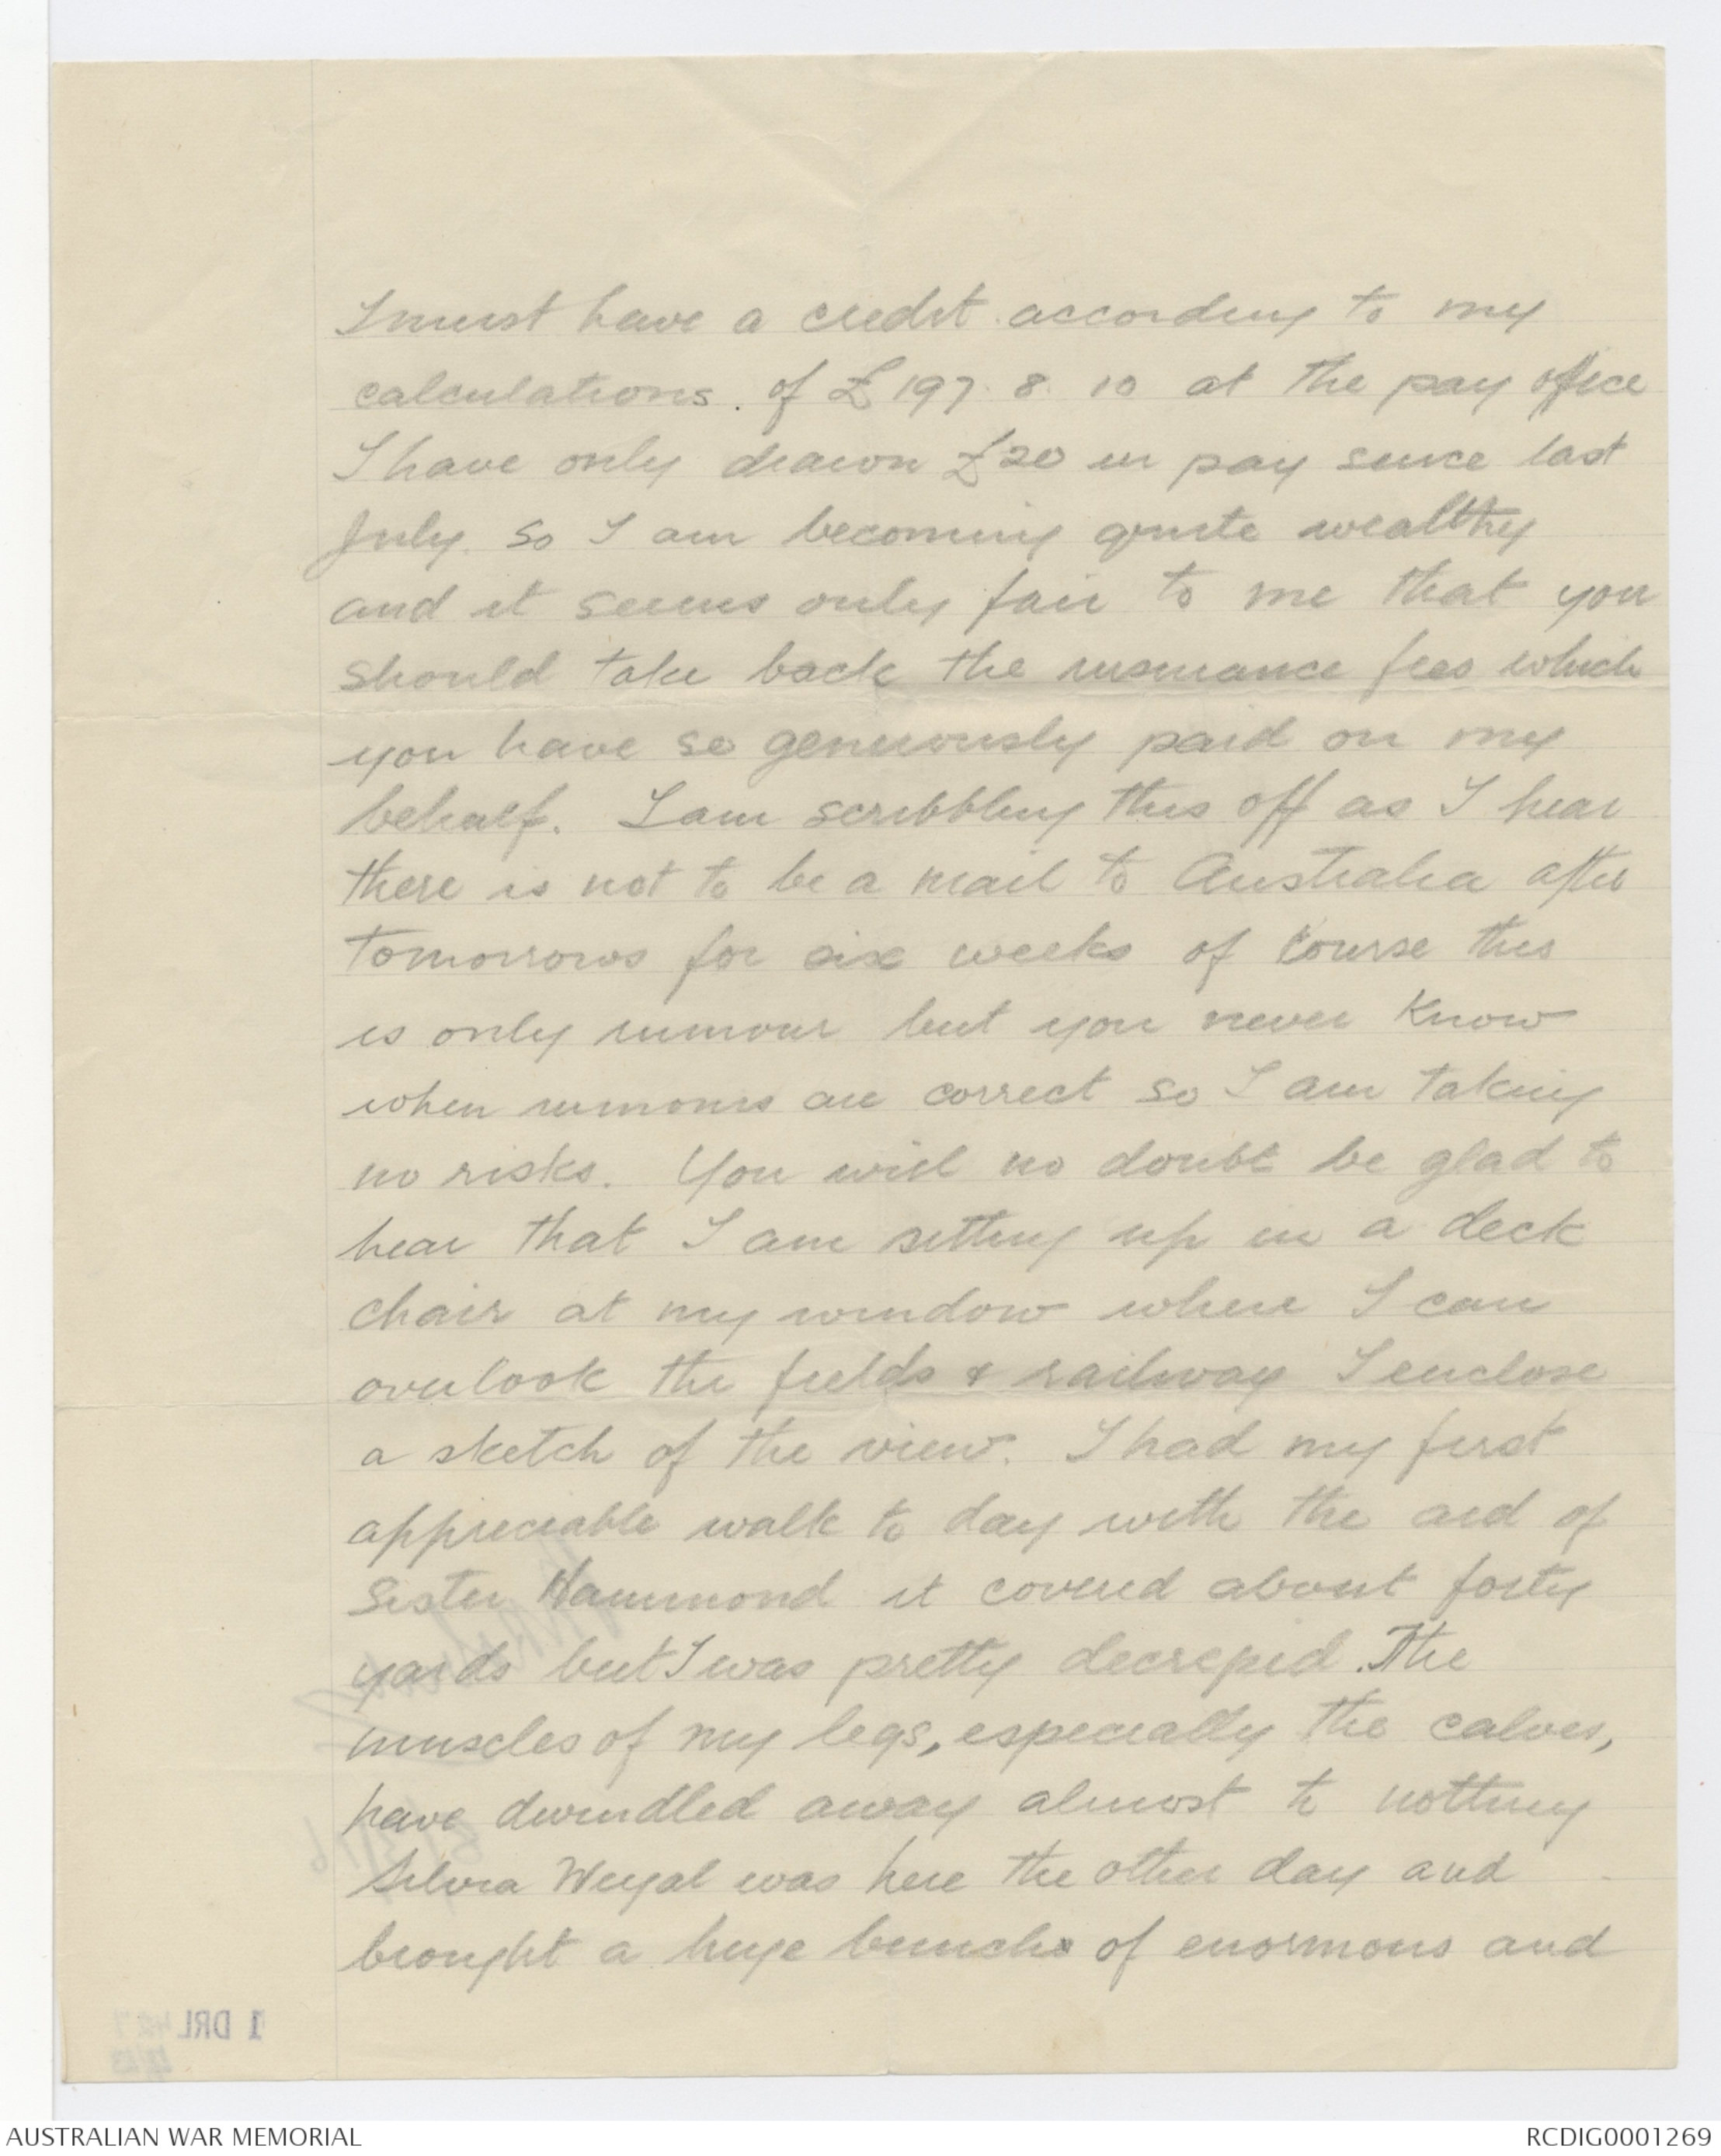 I must have a credit according to my
calculations. of £197. 8. 10 at the pay office
I have only drawn £20 in pay since last
July. So I am becoming quite wealthy
and it seems only fair to me that you
should take back the insurance fees which
you have so generously paid on my
behalf. I am scribbling this off as I hear
there is not to be a mail to Australia after
tomorrows for six weeks of course this
is only rumour but you never know
when rumours are correct so I am taking
no risks. You will no doubt be glad to
hear that I am sitting up in a deck
chair at my window where I can
overlook the fields & railway I enclose
a sketch of the view. I had my first
appreciable walk to day with the aid of
Sister Hammond it covered about forty
yards but I was pretty decrepid. The
muscles of my legs, especially the calves,
have dwindled away almost to nothing
Silvia was here the other day and
brought a huge bunch of enormous and
1 DRL 427
AUSTRALIAN WAR MEMORIAL
RCDIG0001269